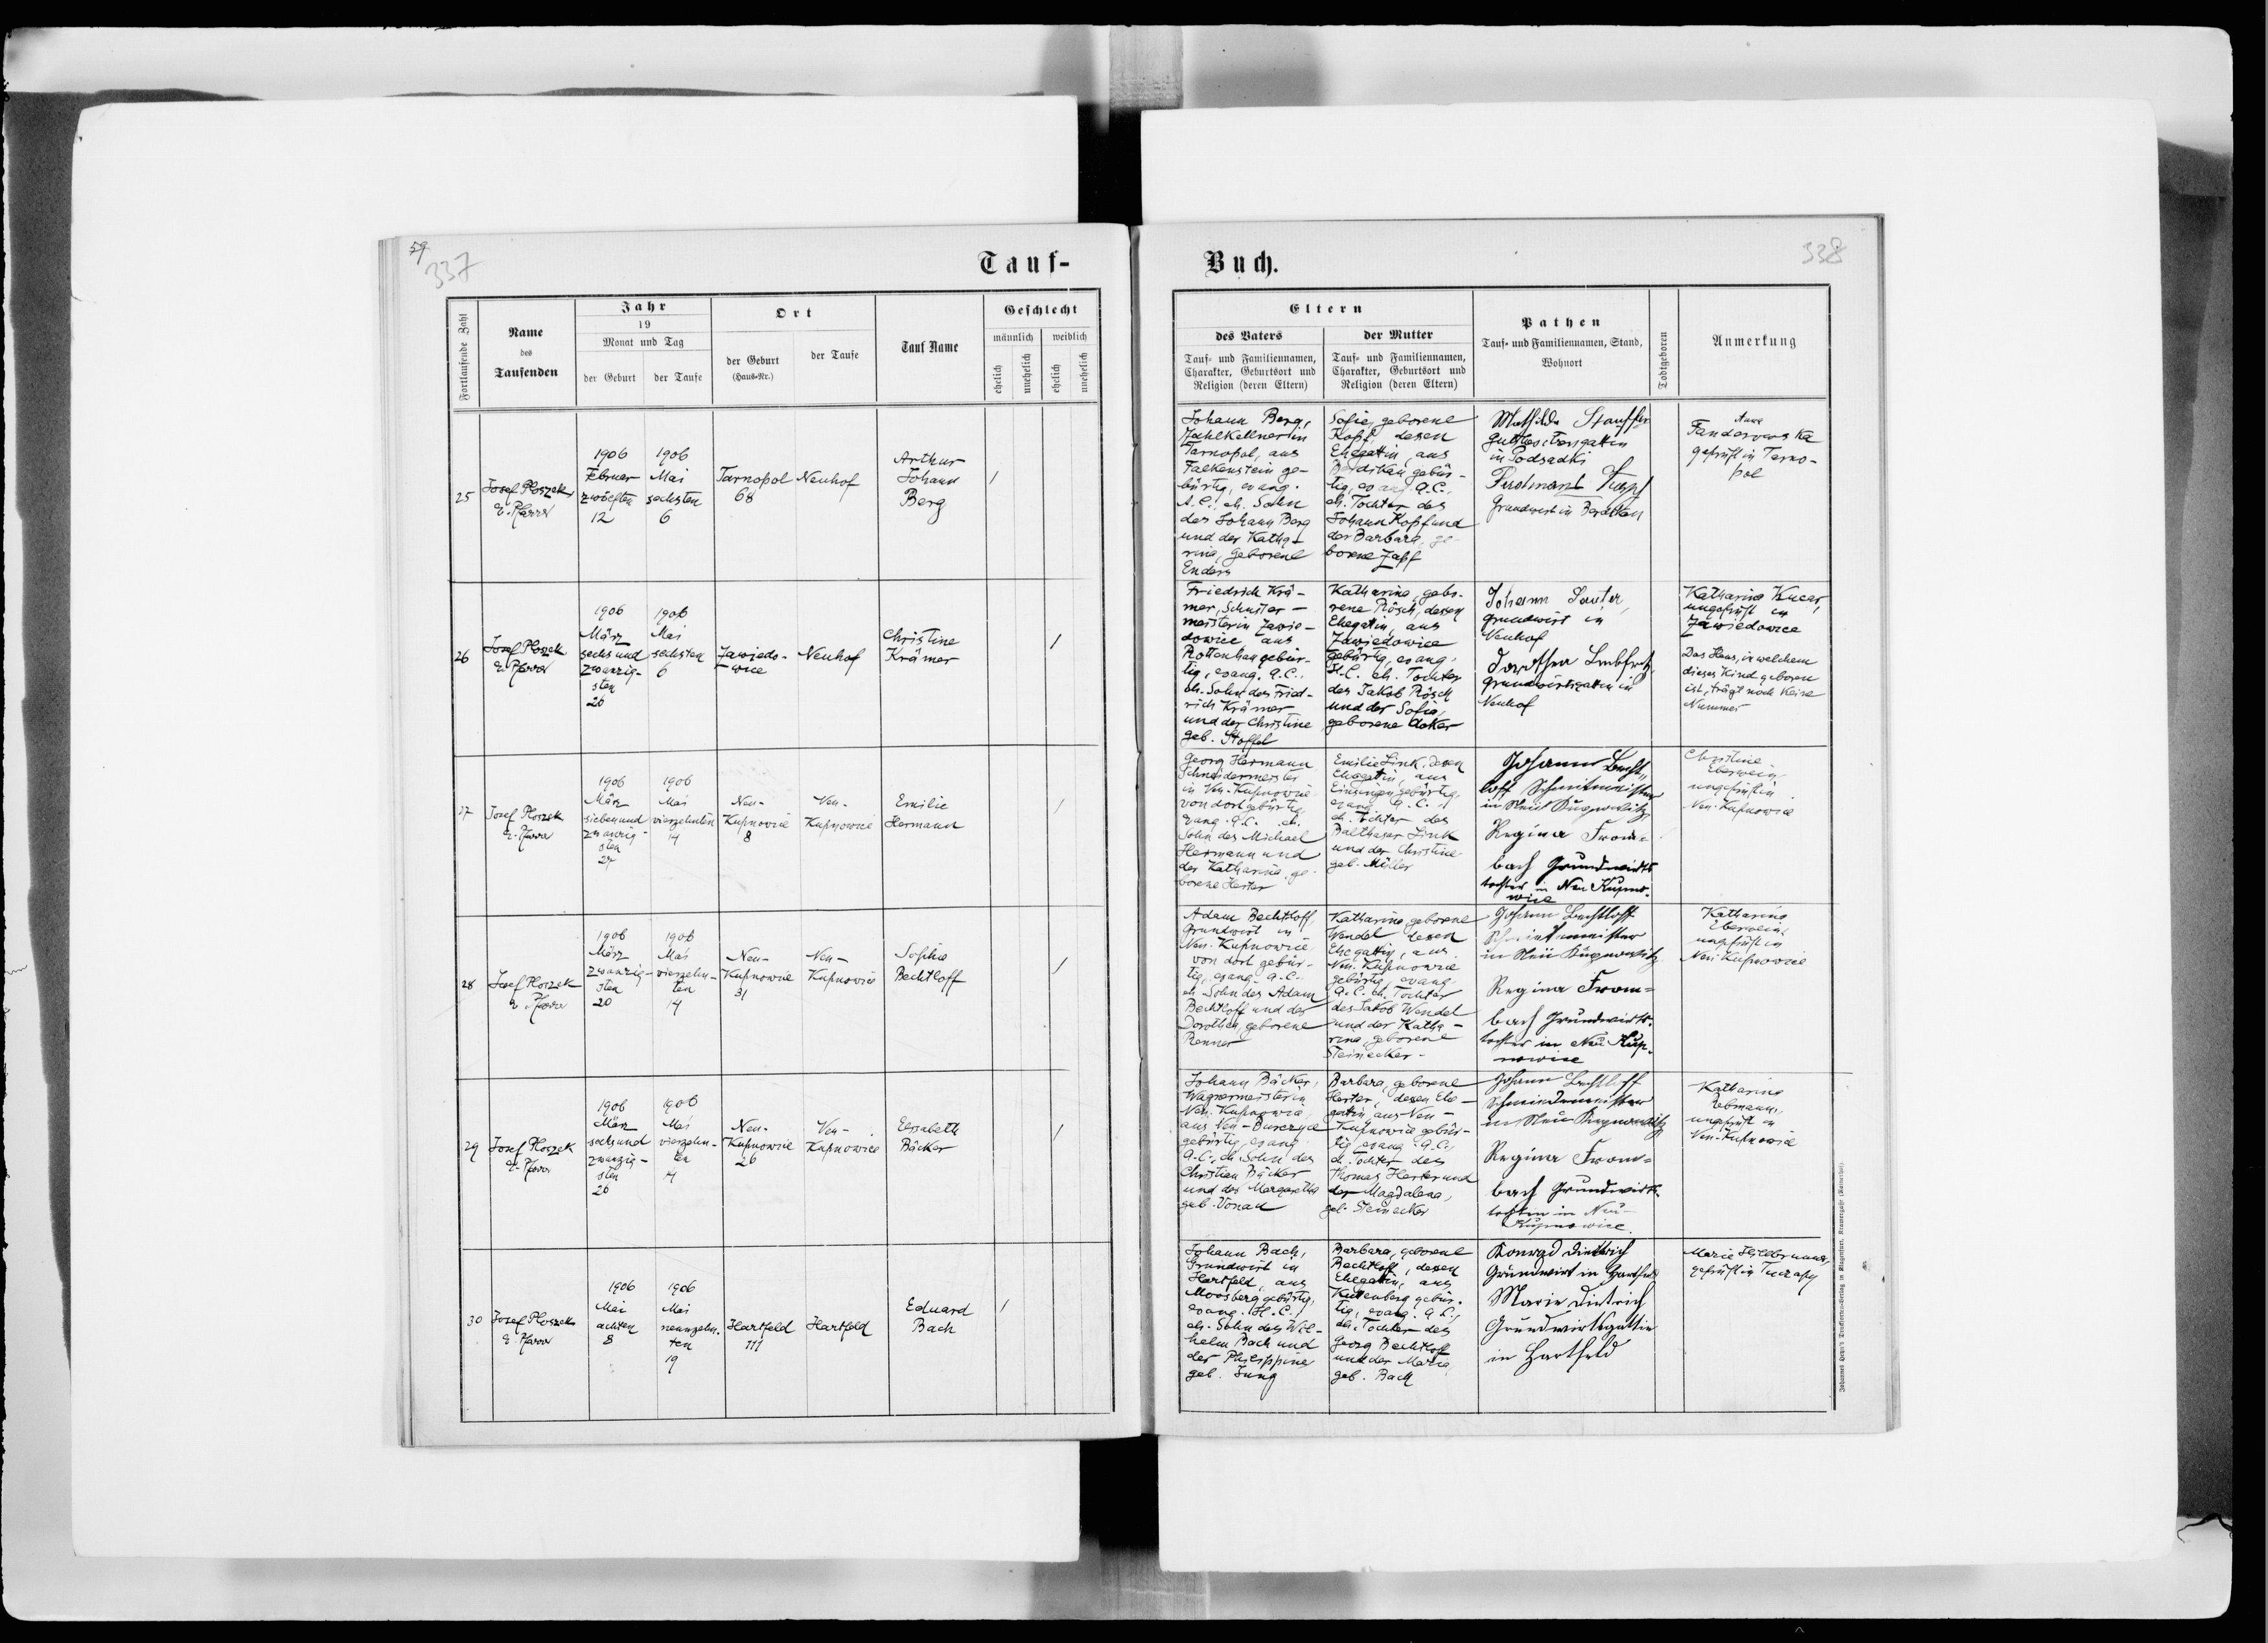 59
337
Tauf-
Fortlaufende Zahl
Name
des
Taufenden
Jahr
19
Monat und Tag
der Geburt
der Taufe
Ort
der Geburt
(Haus-Nr.)
der Taufe
Tauf Name
Geschlecht
männlich
weiblich
ehelich
unehelich
ehelich
unehelich
25
Josef Ploszek
e. Pfarrer
1906
Februar
zwölften
12
1906
Mai
sechsten
6
Tarnopol
68
Neuhof
Arthur
Johann
Berg
26
Josef Ploszek
e. Pfarrer
1906
März
sechsund
zwanzig-
sten
26
1906
Mai
sechsten
6
Zawiedo-
wice
Neuhof
Christine
Krämer
27
Josef Ploszek
e. Pfarrer
1906
März
siebenund
zwanzig-
sten
27
1906
Mai
vierzehnten
14
Neu-
Kupnowice
8
Neu-
Kupnowice
Emilie
Hermann
28
Josef Ploszek
e. Pfarrer
1906
März
zwanzig-
sten
20
1906
Mai
vierzehn-
ten
14
Neu-
Kupnowice
31
Neu-
Kupnowice
Sophie
Bechtloff
29
Josef Ploszek
e. Pfarrer
1906
März
sechsund
zwanzig-
sten
26
1906
Mai
vierzehn-
ten
14
Neu-
Kupnowice
26
Neu-
Kupnowice
Elisabeth
Bäcker
30
Josef Ploszek
e. Pfarrer
1906
Mai
achten
8
1906
Mai
neunzehn-
ten
19
Hartfeld
111
Hartfeld
Eduard
Bach
Buch.
338
Eltern
des Vaters
Tauf- und Familiennamen,
Charakter, Geburtsort und
Religion (deren Eltern)
der Mutter
Tauf- und Familiennamen,
Charakter, Geburtsort und
Religion (deren Eltern)
Pathen
Tauf- und Familiennamen, Stand,
Wohnort
Todtgeboren
Anmerkung
Johann Berg,
Zahlkellner in
Tarnopol, aus
Falkenstein ge-
bürtig, evang.
A.C., eh. Sohn
des Johann Berg
und der Katha-
rina, geborene
Enders
Sofie, geborene
Kopf, dessen
Ehegattin, aus
gebür-
tig, evang. A.C.,
eh. Tochter des
Johann Kopf und
der Barbara, ge-
borene Zapf
Mathilde Stauffer
Gutsbesitzersgattin
in Podsadki
Ferdinand
Grundwirt in
Anna
geprüft in Tarno-
pol
Friedrich Krä-
mer, Schuster-
meister in Zawie-
dowice aus
Rottenhan gebür-
tig, evang. A.C.,
eh. Sohn des Fried-
rich Krämer
und der Christine
geb. Stoffel
Katharina, gebo-
rene Rösch, dessen
Ehegattin, aus
Zawiedowice
gebürtig, evang.
H.C. eh. Tochter
des Jakob Rösch
und der Sofie,
geborene
Johann Sauter,
Grundwirt in
Neuhof
Dorothea
Grundwirtsgattin in
Neuhof
Katharina
ungeprüft in
Zawiedowice
Das Haus, in welchem
dieses Kind geboren
ist, trägt noch keine
Nummer
Georg Hermann
Schneidermeister
in Neu-Kupnowice
von dort gebürtig
evang. A.C. eh.
Sohn des Michael
Hermann und
der Katharina, ge-
borene Herter
Emilie Link, dessen
Ehegattin, aus
Einsingen gebürtig,
evang. A.C.,
eh. Tochter des
Balthasar Link
und der Christine
geb. Müller
Johann Becht-
loff Schmiedmeister
in Neu Kupnowitz
Regina From-
bach Grundwirts-
tochter in Neu Kupno-
wice
Christine
Eberwein
ungeprüft in
Neu-Kupnowice
Adam Bechtloff
Grundwirt in
Neu-Kupnowice
von dort gebür-
tig, evang. A.C.
eh. Sohn des Adam
Bechtloff und der
Dorothea, geborene
Renner
Katharina, geborene
Wendel dessen
Ehegattin, aus
Neu-Kupnowice
gebürtig, evang.
A.C. eh. Tochter
des Jakob Wendel
und der Katha-
rina, geborene
Steinecker
Johann Bechtloff
Schmiedmeister
in Neu Kupnowitz
Regina From-
bach Grundwirts-
tochter in Neu Kup-
nowice
Katharina
Eberwein,
ungeprüft in
Neu-Kupnowice
Johann Bäcker,
Wagnermeister in
Neu-Kupnowice,
aus Neu-Burczyce
gebürtig, evang.
A.C., eh. Sohn des
Christian Bäcker
und der Margaretha
geb. Vonau
Barbara, geborene
Herter, dessen Ehe-
gattin aus Neu-
Kupnowice gebür-
tig, evang. A.C.,
eh. Tochter des
Thomas Herter und
der Magdalena,
geb. Steinecker
Johann Bechtloff
Schmiedmeister
in Neu Kupnowitz
Regina From-
bach Grundwirts-
tochter in Neu-
Kupnowice
Katharina
ungeprüft in
Neu-Kupnowice
Johann Bach,
Grundwirt in
Hartfeld, aus
Moosberg gebürtig,
evang. H.C.,
eh. Sohn des Wil-
helm Bach und
der Philippine
geb. Jung
Barbara, geborene
Bechtloff, dessen
Ehegattin, aus
Kuttenberg gebür-
tig, evang. A.C.,
eh. Tochter des
Georg Bechtloff
und der Maria,
geb. Bach
Konrad Dietrich
Grundwirt in Hartfeld
Marie Dietrich
Grundwirtsgattin
in Hartfeld
Marie Hillbrunner,
geprüft in Tuczapy